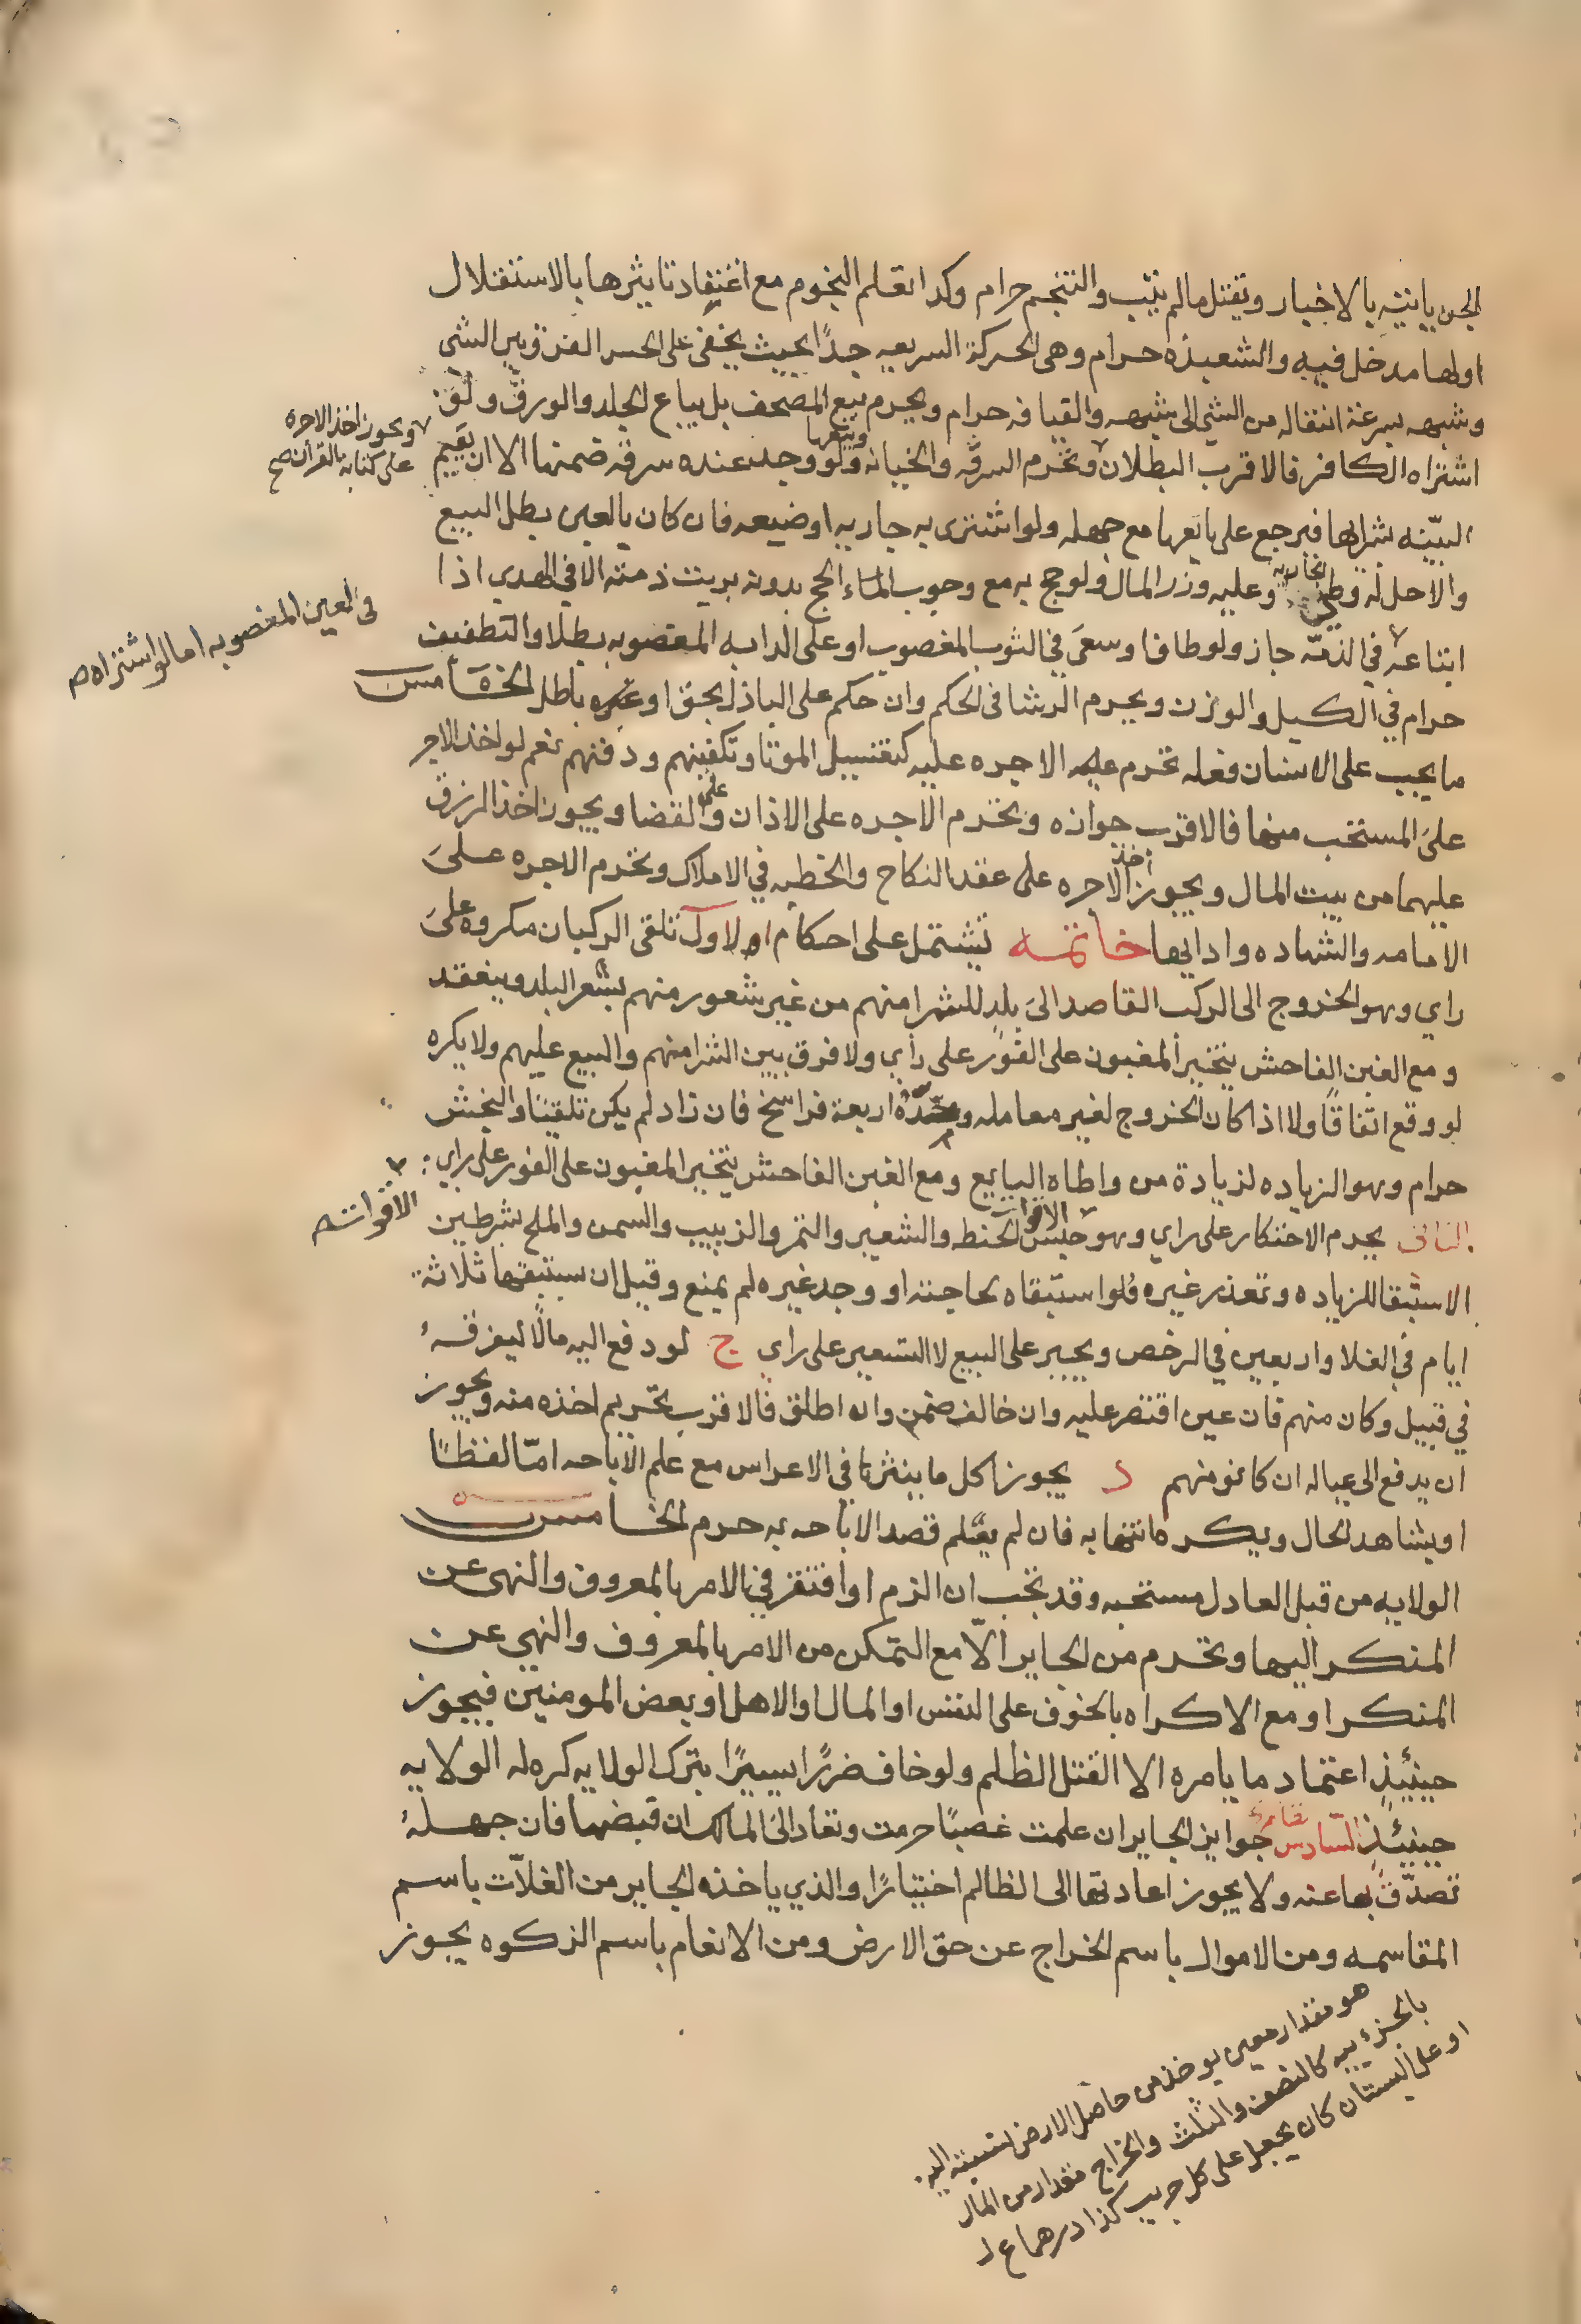 الجن ياتيه بالاخبار ويقتل مالم يتب والتنجيم حرام وكدا تعلم النجوم مع اعتقاد تاثيرها بالاستقلال
اولها مدخل فيه والشعبذه حرام وهى الحركة السريعه جدًا بحيث يخفى على الحس الفرق بين الشى
وشبهه بسرعة انتقاله من الشي الى شبهه والقيافه حرام ويحرم بيع المصحف بل يباع الجلد والورق ولو
ويجوز اخذ الاجره
على كتابه القرآن صح
اشتراه الكافر فالاقرب البطلان وتحرم السرقه والخيانه وبيعها ولو وجد عنده سرقه ضمنها الا ان يقيم
البيّنه بشرايها فيرجع على بايعها مع جهله ولو اشترى به جاريه او ضيعه فان كان بالعين بطل البيع
والاحل له وطى الجاريه وعليه وزر المال ولو حج به مع وجوب الحج بدونه بريت ذمته الا في الهدي اذا
ابتاعه في الذمّه جاز ولو طاف او سعى في الثوب المغصوب او على الدابه المغصوبه بطلا والتطفيف
فى العين المغصوبه اما لو اشتراه ص
حرام في الكيل والوزن ويحرم الرشا فى الحكم وان حكم على الباذل بحق او غيره باطل الخامس
ما يجب على الانسان فعله تحرم الاجره عليه كتغسيل الموتا وتكفينهم ودفنهم نعم لو اخذ الاجر
على المستحب منها فالاقرب جوازه وتحرم الاجره على الاذان وعلى القضا ويجوز اخذ الرزق
عليهما من بيت المال ويجوز اخذ الاجره على عقد النكاح والخطبه في الاملاك وتحرم الاجره على
الامامه والشهاده وادايها خاتمه تشتمل على احكام الاول تلقى الركبان مكروه على
راي وهو الخروج الى الركب القاصد الى بلد للشرا منهم من غير شعور منهم بسعر البلد وينعقد
ومع الغبن الفاحش يتخير المغبون على الفور على رأي ولا فرق بين الشرا منهم والبيع عليهم ولا يكره
لو وقع اتفاقًا ولا اذا كان الخروج لغير معامله وحدّه اربعة فراسخ فان زاد لم يكن تلقيًا والنجش
حرام وهو الزياده لزيادة من واطاه البايع ومع الغبن الفاحش يتخير المغبون على الفور على راي
الثانى يحرم الاحتكار على راي وهو حبس الاقوات الحنطه والشعير والتمر والزبيب والسمن والملح بشرطين
الاقوات ص
الاستبقا للزياده وتعذر غيره فلو استبقاه لحاجته او وجد غيره لم يمنع وقيل ان يستبقيها ثلاثة
ايام في الغلا واربعين في الرخص ويجبر على البيع لا التسعير على راي ج لو دفع اليه مالًا ليفرقه
في قبيل وكان منهم فان عين اقتصر عليه وان خالف ضمن وان اطلق فالاقرب تحريم اخذه منه ويجوز
ان يدفع الى عياله ان كانو منهم د يجوز اكل ما ينثر في الاعراس مع علم الاباحه امّا لفظًا
او بشاهد الحال ويكره انتهابه فان لم يعلم قصد الاباحه به حرم الخامس
الولايه من قبل العادل مستحبه وقد تجب ان الزم او افتقر في الامر بالمعروف والنهى عن
المنكر اليها وتحرم من الجاير الّا مع التمكن من الامر بالمعروف والنهي عن
المنكر او مع الاكراه بالخوف على النفس او المال او الاهل او بعض المومنين فيجوز
حينئيذٍ اعتماد ما يامره الا القتل الظلم ولو خاف ضررًا يسيرًا بترك الولايه كره له الولايه
حينئيذٍ السّادس جوايز الجاير ان علمت غصبًا حرمت وتعاد الى المالك ان قبضها فان جهله
تصدّق بها عنه ولا يجوز اعادتها الى الظالم اختيارًا والذي ياخذه الجاير من الغلّات باسم
المقاسمه ومن الاموال باسم الخراج عن حق الارض ومن الانعام باسم الزكوه يجوز
هو مقدار معين يوخذ من حاصل الارض نسبته اليه
بالجزءييه كالنصف والثلث والخراج مقدار من المال
او على البستان كان يجعل على كل جريب كذا درهما ع ل